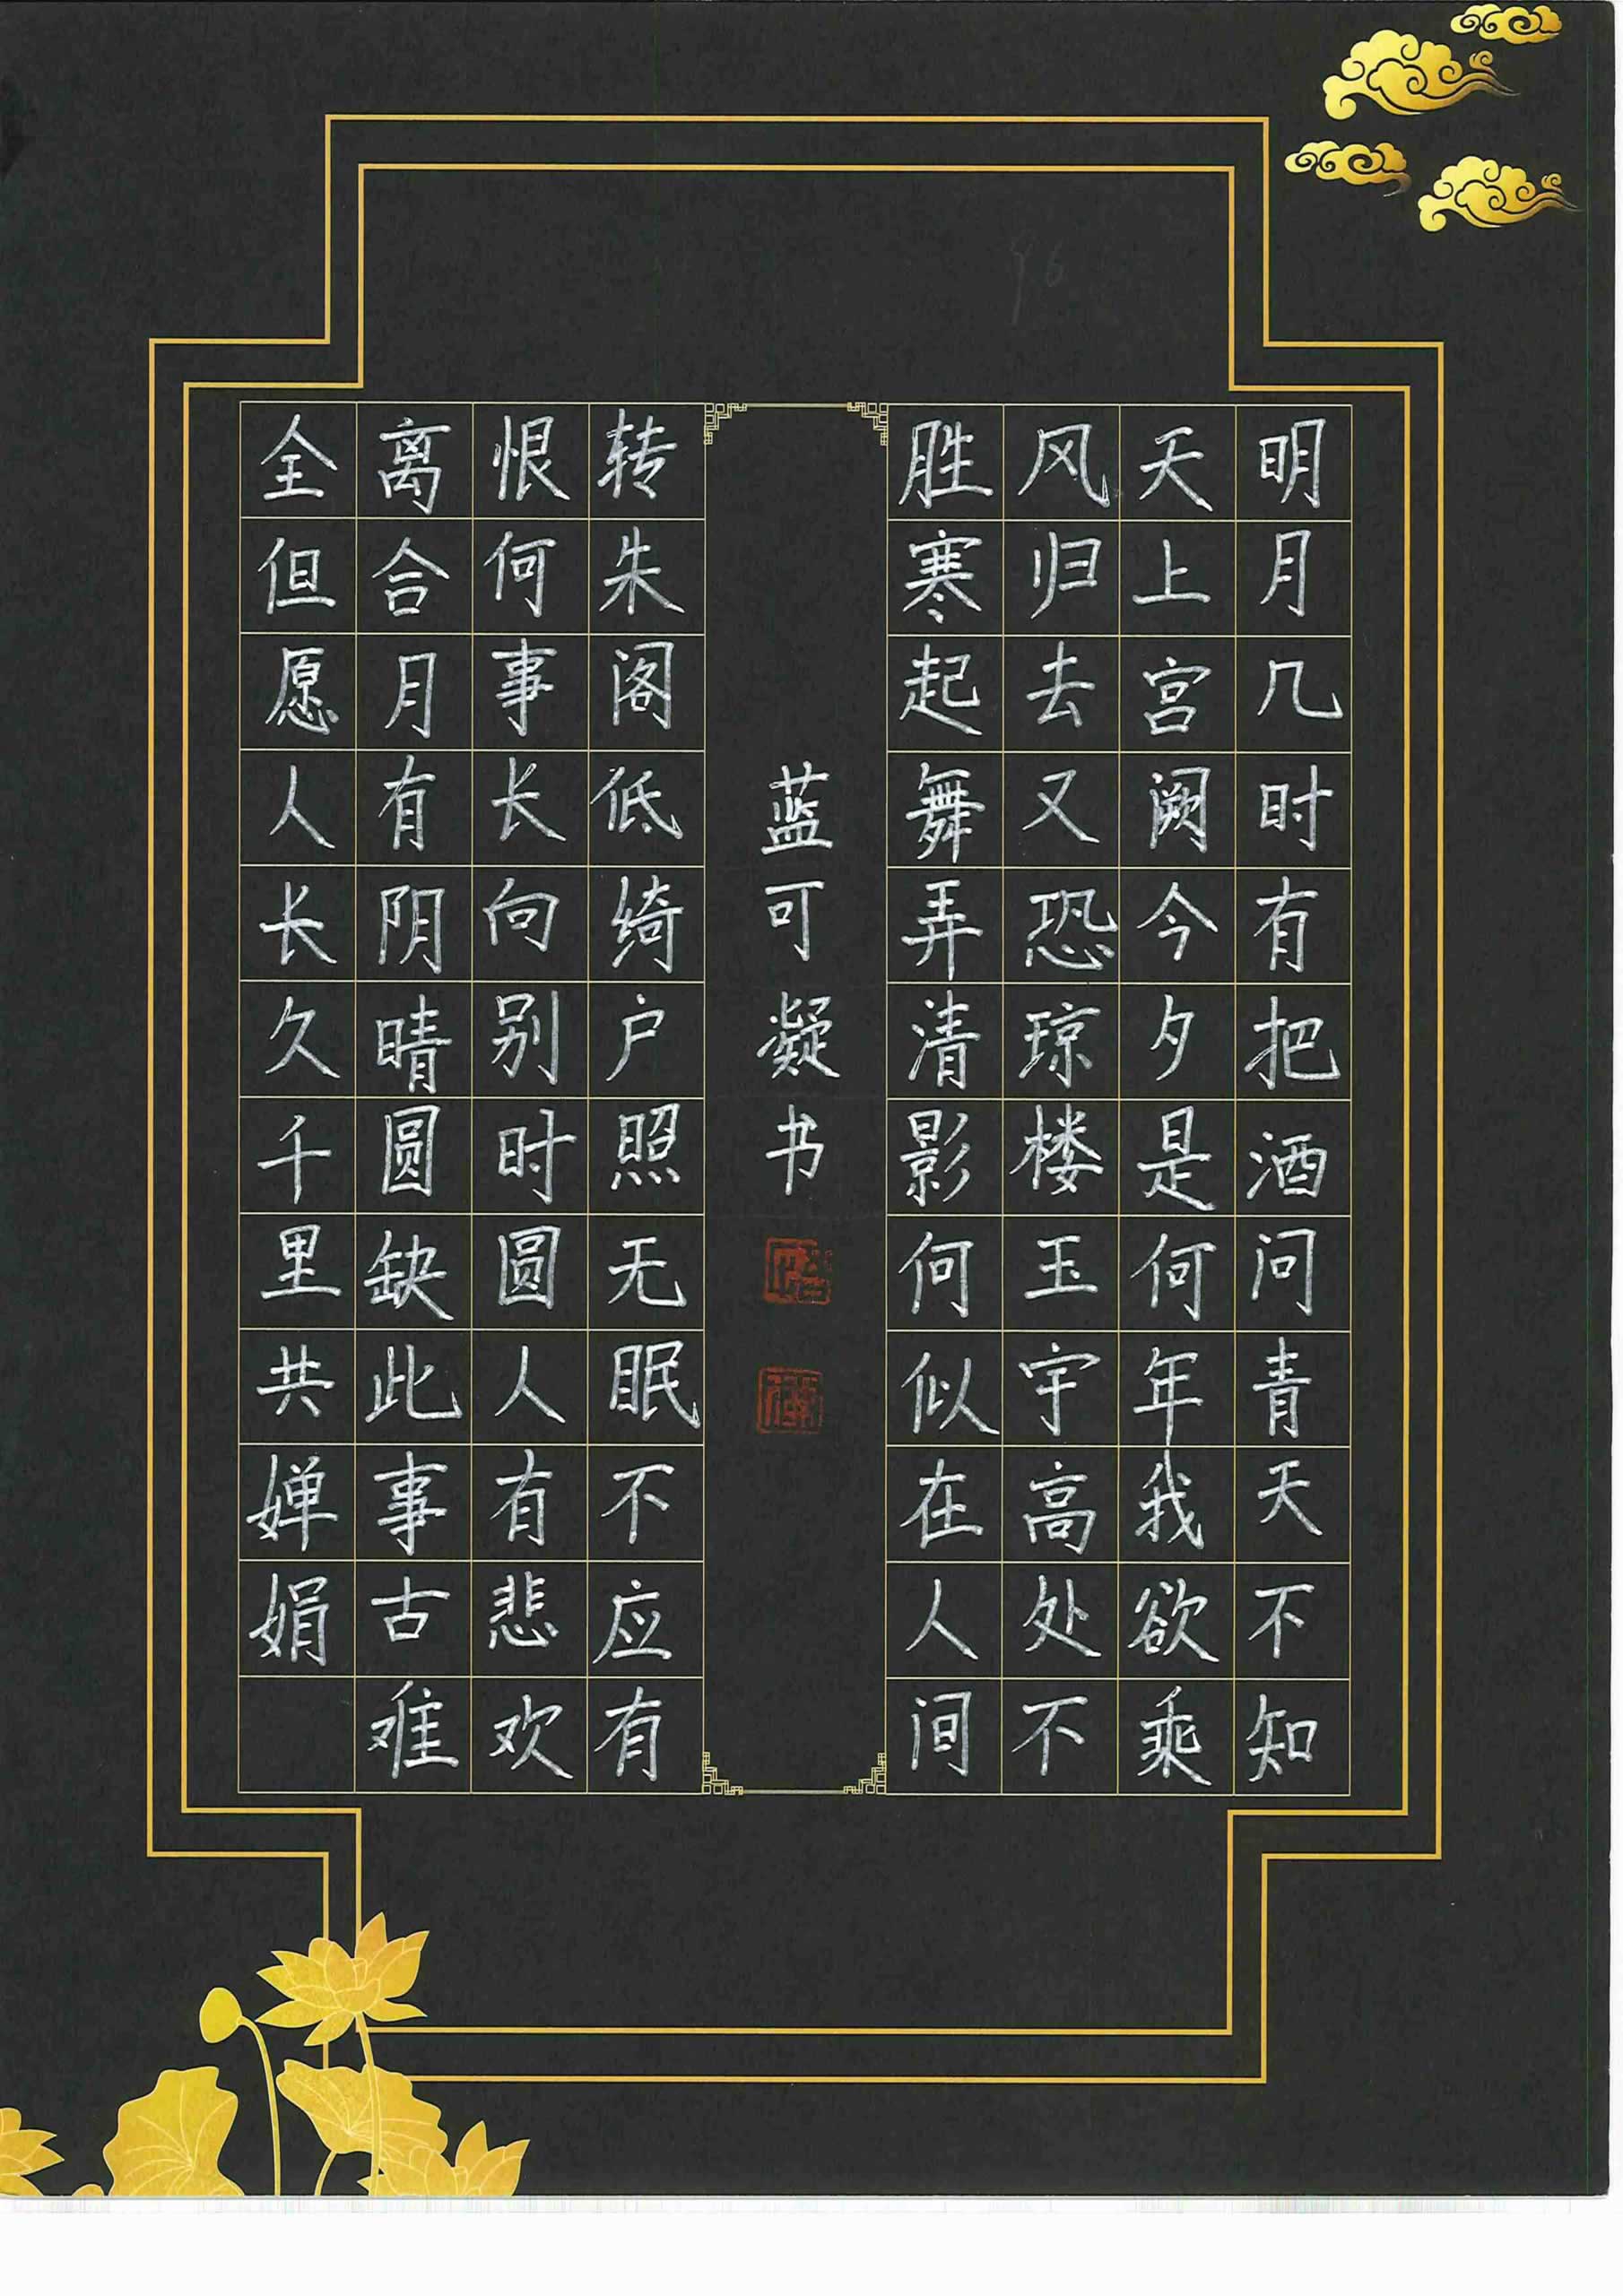 明月几时有把酒问青天不知
天上宫阙今夕是何年我欲乘
风归去又恐琼楼玉宇高处不
胜寒起舞弄清影何似在人间
蓝可凝书
转朱阁低绮户照无眠不应有
恨何事长向别时圆人有悲欢
离合月有阴晴圆缺此事古难
全但愿人长久千里共婵娟